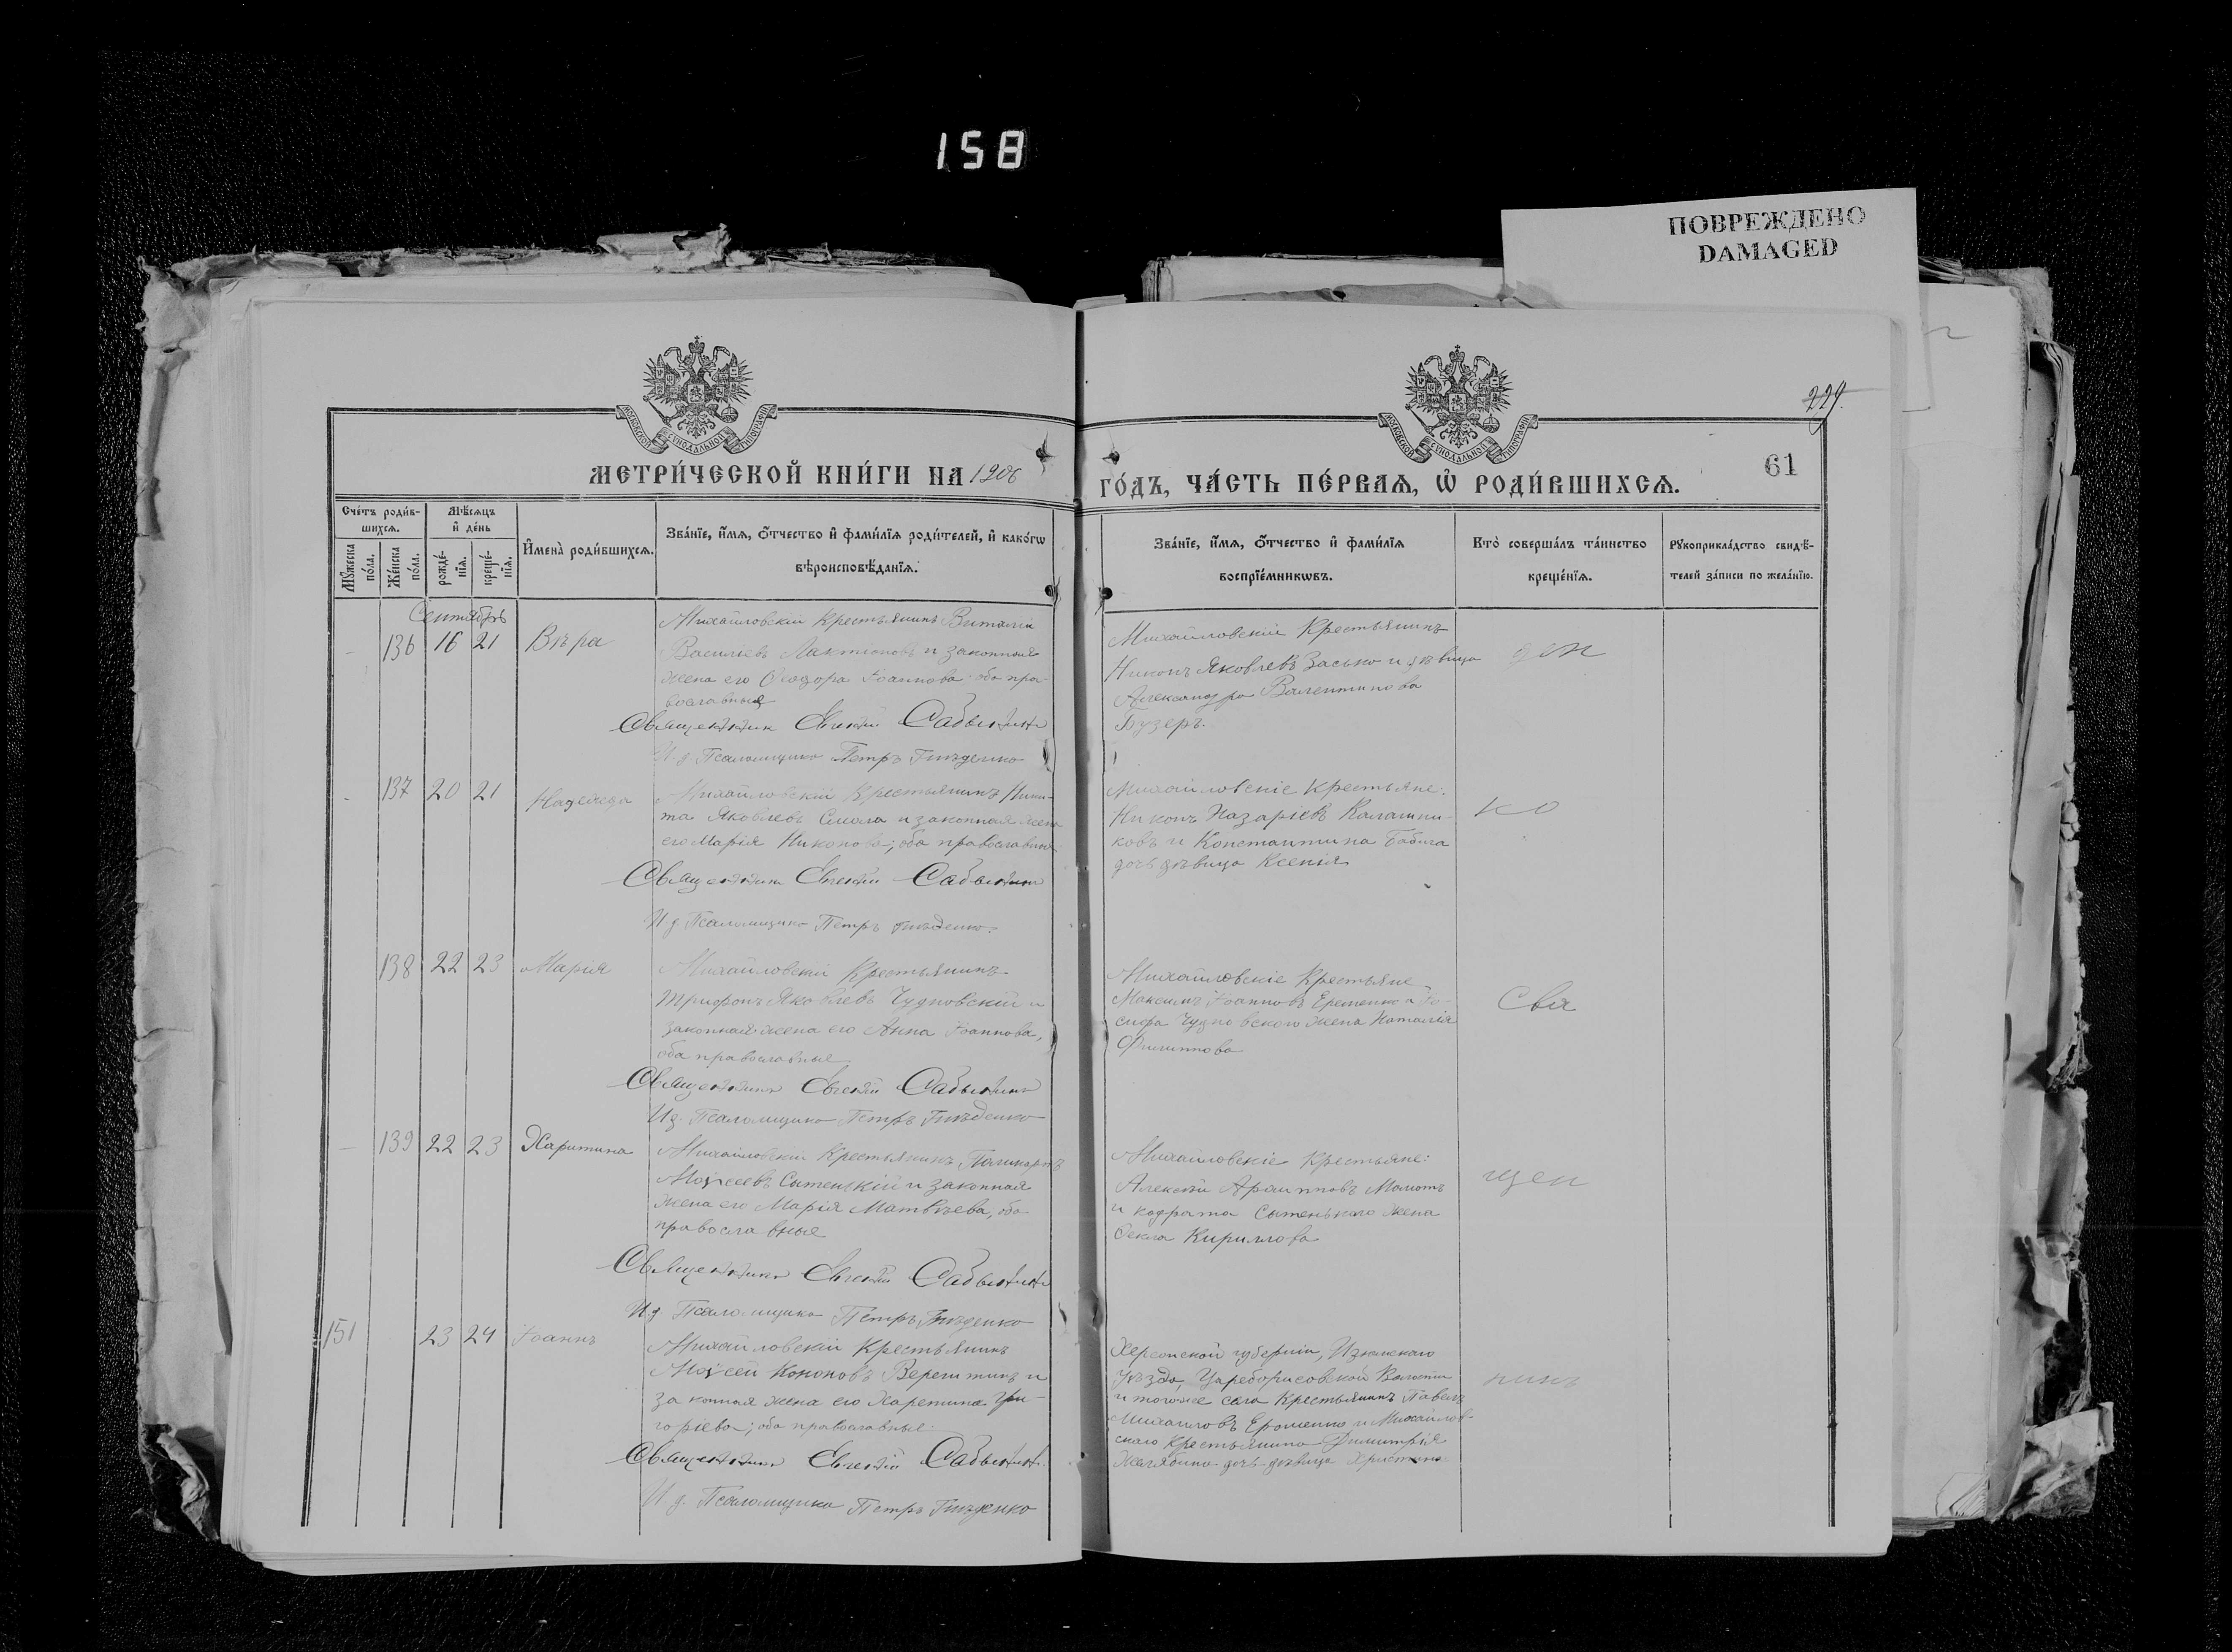 158
ПОВРЕЖДЕНО
DAMAGED
МОСКОВСКОЙ СѴНОДАЛЬНОЙ ТИПОГРАФІИ
МОСКОВСКОЙ СѴНОДАЛЬНОЙ ТИПОГРАФІИ
229.
МЕТРИ́ЧЕСКОЙ КНИ́ГИ НА 1906
ГО́ДЪ, ЧА́СТЬ ПЕ́РВАѦ, Ѡ҆ РОДИ́ВШИХСѦ.
61
Сче́тъ роди́в-
шихсѧ.
Мѣ́сѧцъ
и҆ де́нь
Мꙋ́жеска
по́ла.
Же́нска
по́ла.
рожде́-
нїѧ.
креще́-
нїѧ.
И҆мена̀ роди́вшихсѧ.
Зва́нїе, и҆́мѧ, ѻ҆́тчество и҆ фами́лїѧ роди́телей, и҆ како́гѡ
вѣроисповѣ́данїѧ.
Зва́нїе, и҆́мѧ, ѻ҆́тчество и҆ фами́лїѧ
воспрїе́мникѡвъ.
Кто̀ соверша́лъ та́инство
креще́нїѧ.
Рꙋкоприкла́дство свидѣ́-
телей за́писи по жела́нїю.
Сентябрь
136 16 21 Вѣра
Михайловскій Крестьянинъ Виталій
Васильевъ Лактіоновъ и законная
жена его Ѳеодора Іоаннова оба пра-
вославные
Священникъ Евгеній Сабынинъ
И. д. Псаломщика Петръ Гнѣденко
Михайловскій Крестьянинъ
Никонъ Яковлевъ Засько и дѣвица
Александра Валентинова
Бузеръ.
137 20 21 Надежда
Михайловскій Крестьянинъ Ники-
та Яковлевъ Смола и законная жена
его Марія Никонова; оба православные
Священникъ Евгеній Сабынинъ
И. д. Псаломщика Петръ Гнѣденко.
Михайловскіе Крестьяне:
Никонъ Назаріевъ Калашни-
ковъ и Константина Бабича
дочь дѣвица Ксенія
138 22 23 Марія
Михайловскій Крестьянинъ
Трифонъ Яковлевъ Чудновскій и
законная жена его Анна Іоаннова,
оба православные
Священникъ Евгеній Сабынинъ
И. д. Псаломщика Петръ Гнѣденко
Михайловскіе Крестьяне
Максимъ Іоанновъ Еременко и Іо-
сифа Чудновского жена Наталія
Филиппова
Свя
139 22 23 Харитина
Михайловскій Крестьянинъ, Поликарпъ
Моѵсеевъ Сытенькій и законная
жена его Марія Матвѣева, оба
православные
Священникъ Евгеній Сабынинъ
И. д. Псаломщика Петръ Гнѣденко
Михайловскіе Крестьяне:
Алексѣй Архипповъ Мамотъ
и кодрата Сытенькаго жена
Ѳекла Кириллова
щен
151 23 24 Іоаннъ
Михайловскій Крестьянинъ
Моѵсей Кононовъ Верешинъ и
законная жена его Харетина Гри-
горіева; оба православные
Священникъ Евгеній Сабынинъ
И. д. Псаломщика Петръ Гнѣденко
Херсонской губерніи, Изюмскаго
Уѣзда, Цареборисовской Волости
и того же села Крестьянинъ Павелъ
Михайловъ Ерошенко и Михайлов-
скаго Крестьянина Димитрія
дочь дѣвица Христина
никъ